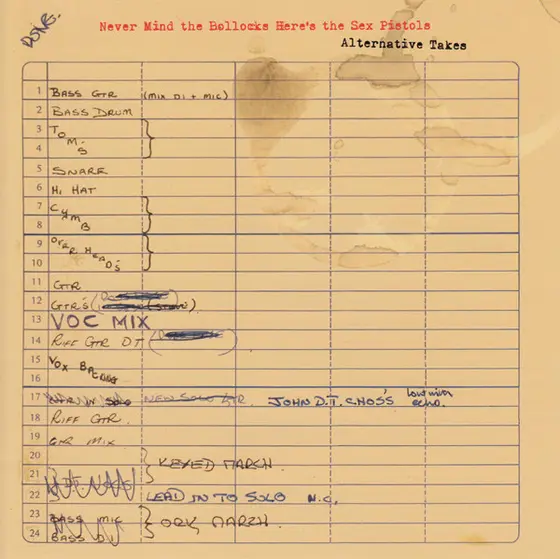 DONE.
Never Mind the Bollocks Here's the Sex Pistols
Alternative Takes
1 BASS GTR (MIX DI + MIC)
2 BASS DRUM
3 TOM'S
4
5 SNARE
6 HI HAT
7 CYMB
8
9 OVER HEAD'S
10
11 GTR
12 GTR'S (
13 VOC MIX
14 RIFF GTR DT (
15 VOX BACKING
16
17 NEW SOLO GTR. JOHN D.T. CHOS'S echo.
18 RIFF GTR.
19 GTR MIX
20 KEYED MARCH.
21
22 LEAD IN TO SOLO N.C.
23 BASS MIC ORK MARCH.
24 BASS DI